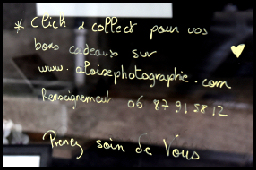 * Click & collect pour vos
bons cadeaux sur
www.aloisephotographie.com
Renseignement 06 87 91 58 12
Prenez soin de Vous